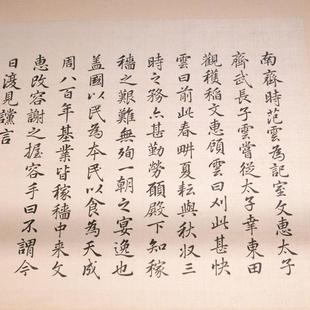 南齊時范雲為記室文惠太子
齊武長子雲嘗從太子幸東田
觀穫稻文惠顧雲曰刈此甚快
雲曰前此春畊夏耘與秋収三
時之務亦甚勤勞願殿下知稼
穡之艱難無殉一朝之宴逸也
盖國以民為本民以食為天成
周八百年基業皆稼穡中来文
惠改容謝之握容手曰不謂今
日復見讜言